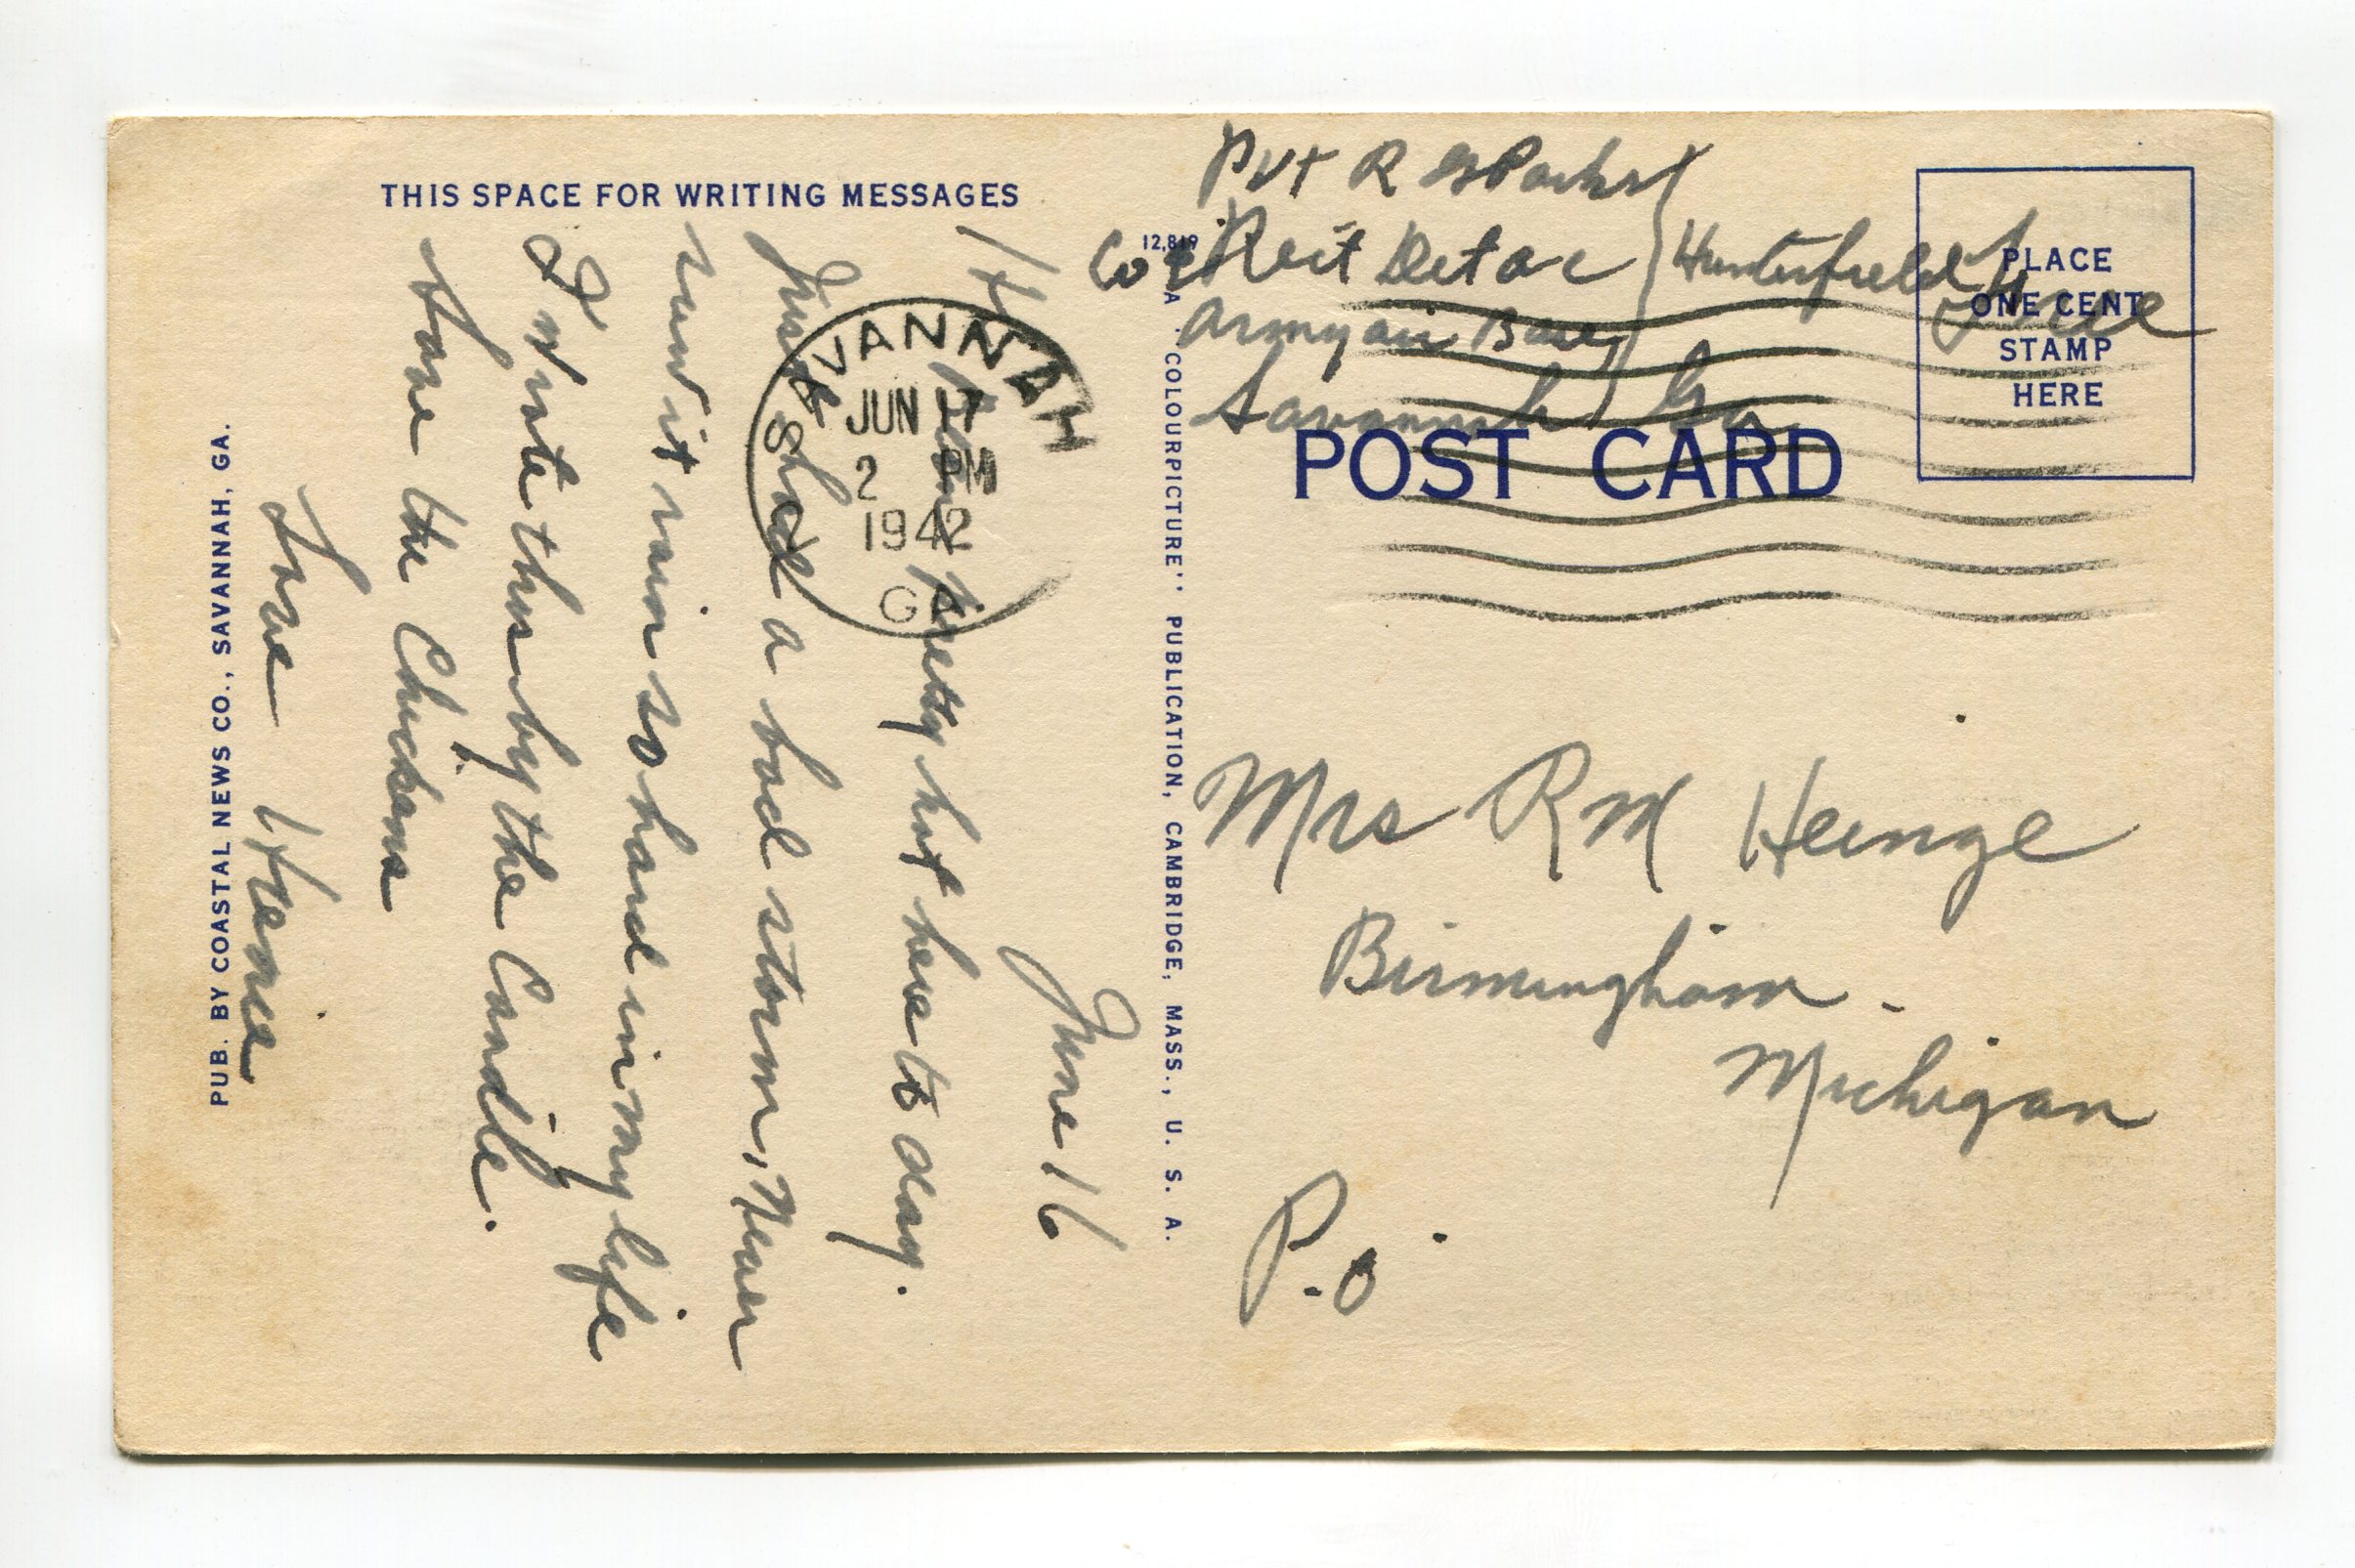 THIS SPACE FOR WRITING MESSAGES
June 16
Hi
Been pretty hot here to day.
Just had a bad storm, Never
saw it rain so hard in my life
I write this by the Candle.
Save the Chickens
Love
PUB. BY COASTAL NEWS CO., SAVANNAH, GA.
VANNAH
JUN
2 PM
1942
G
12,819
A "COLOURPICTURE" PUBLICATION, CAMBRIDGE, MASS., U. S. A.
Pvt R
Co Det
Army air Base
Savannah Ga
Hunterfield
Free
PLACE
ONE CENT
STAMP
HERE
POST CARD
Mrs R M Heinge
Birmingham -
Michigan
P.O